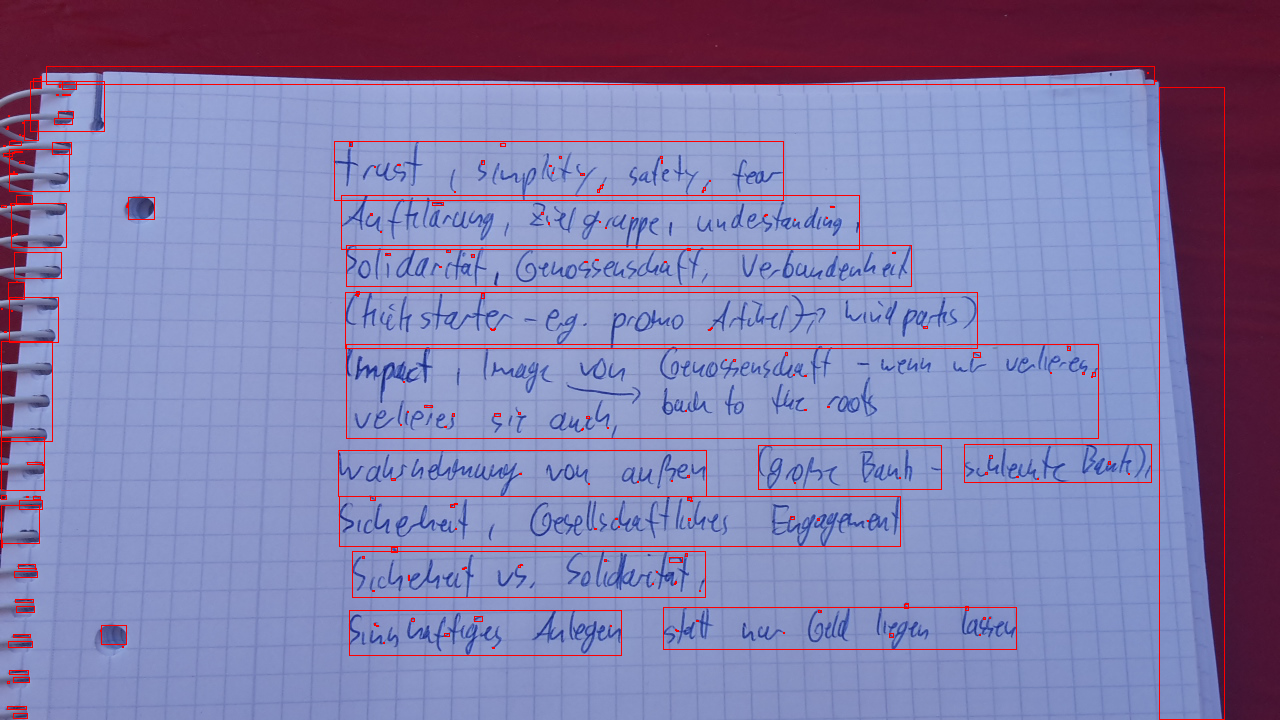 trust, simplity, safety, fear
Aufklärung, Zielgruppe, undestanding,
Solidarität, Genossenschaft, Verbundenheit
(kickstarter - e.g. promo Artikel), windparks)
Impact, Image von Genossenschaft - wenn wir verlieres,
verlieres sie auch, back to the roots
Wahrnehmung von außen (große Bank - schlechte Bank),
Sicherheit, Gesellschaftliches Engagement
Sicheheit vs. Solidarität,
Sinnhaftiges Anlegen statt nur Geld liegen lassen